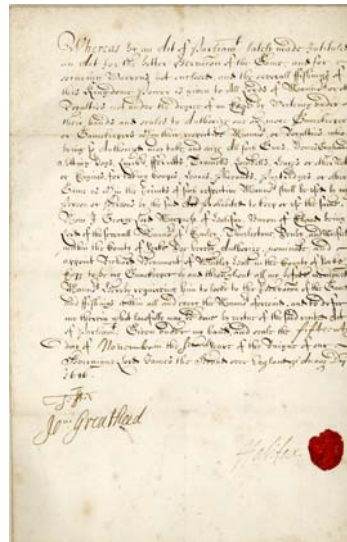 Whereas by an Act of Parliamt lately made Intituled
an Act for the better Preservacon of the Game, and for
securing Warrens not inclosed, and the severall ffishings of
this Kingdome Power is given to all Lords of Mannors or other
Royalties not under the degree of an Esqr by Writeing under
their hands and seales to Authorize one or more Gamekeeper
or Gamekeepers within their respective Mannors or Royalties who
being so Authorized may take and seize all such Guns, Bows, Greyhounds
setting Dogs, Lurchers, fferretts, Tramells, Lowbells, Hayes or other Netts
or Engines for takeing Conyes, Hares, Pheasants, Partridges or other
Game as within the precincts of such respective Mannors shall be used by any
person or persons who by the said Act are prohibited to keep or use the same
Now I George Lord Marquess of Halifax Baron of Eland being
Lord of the severall Mannors of
within the County of Yorke Doe hereby authorize, nominate and
appoint Richard Beaumont of Whitley Hall in the County of Yorke
Esqr to be my Gamekeeper in and throughout all my
Mannors hereby requireing him to looke to the Preservacon of the Game
and ffishings within all and every the Mannors aforesaid, and to
me therein what lawfully may be done by vertue of the said recited Act
of Parliamt. Given under my hand and seale the fifteenth
day of November in the second yeare of the Reigne of our
Soveraigne Lord James the Second over England &c Anno Dni
1686
Jon Greathed
Halifax